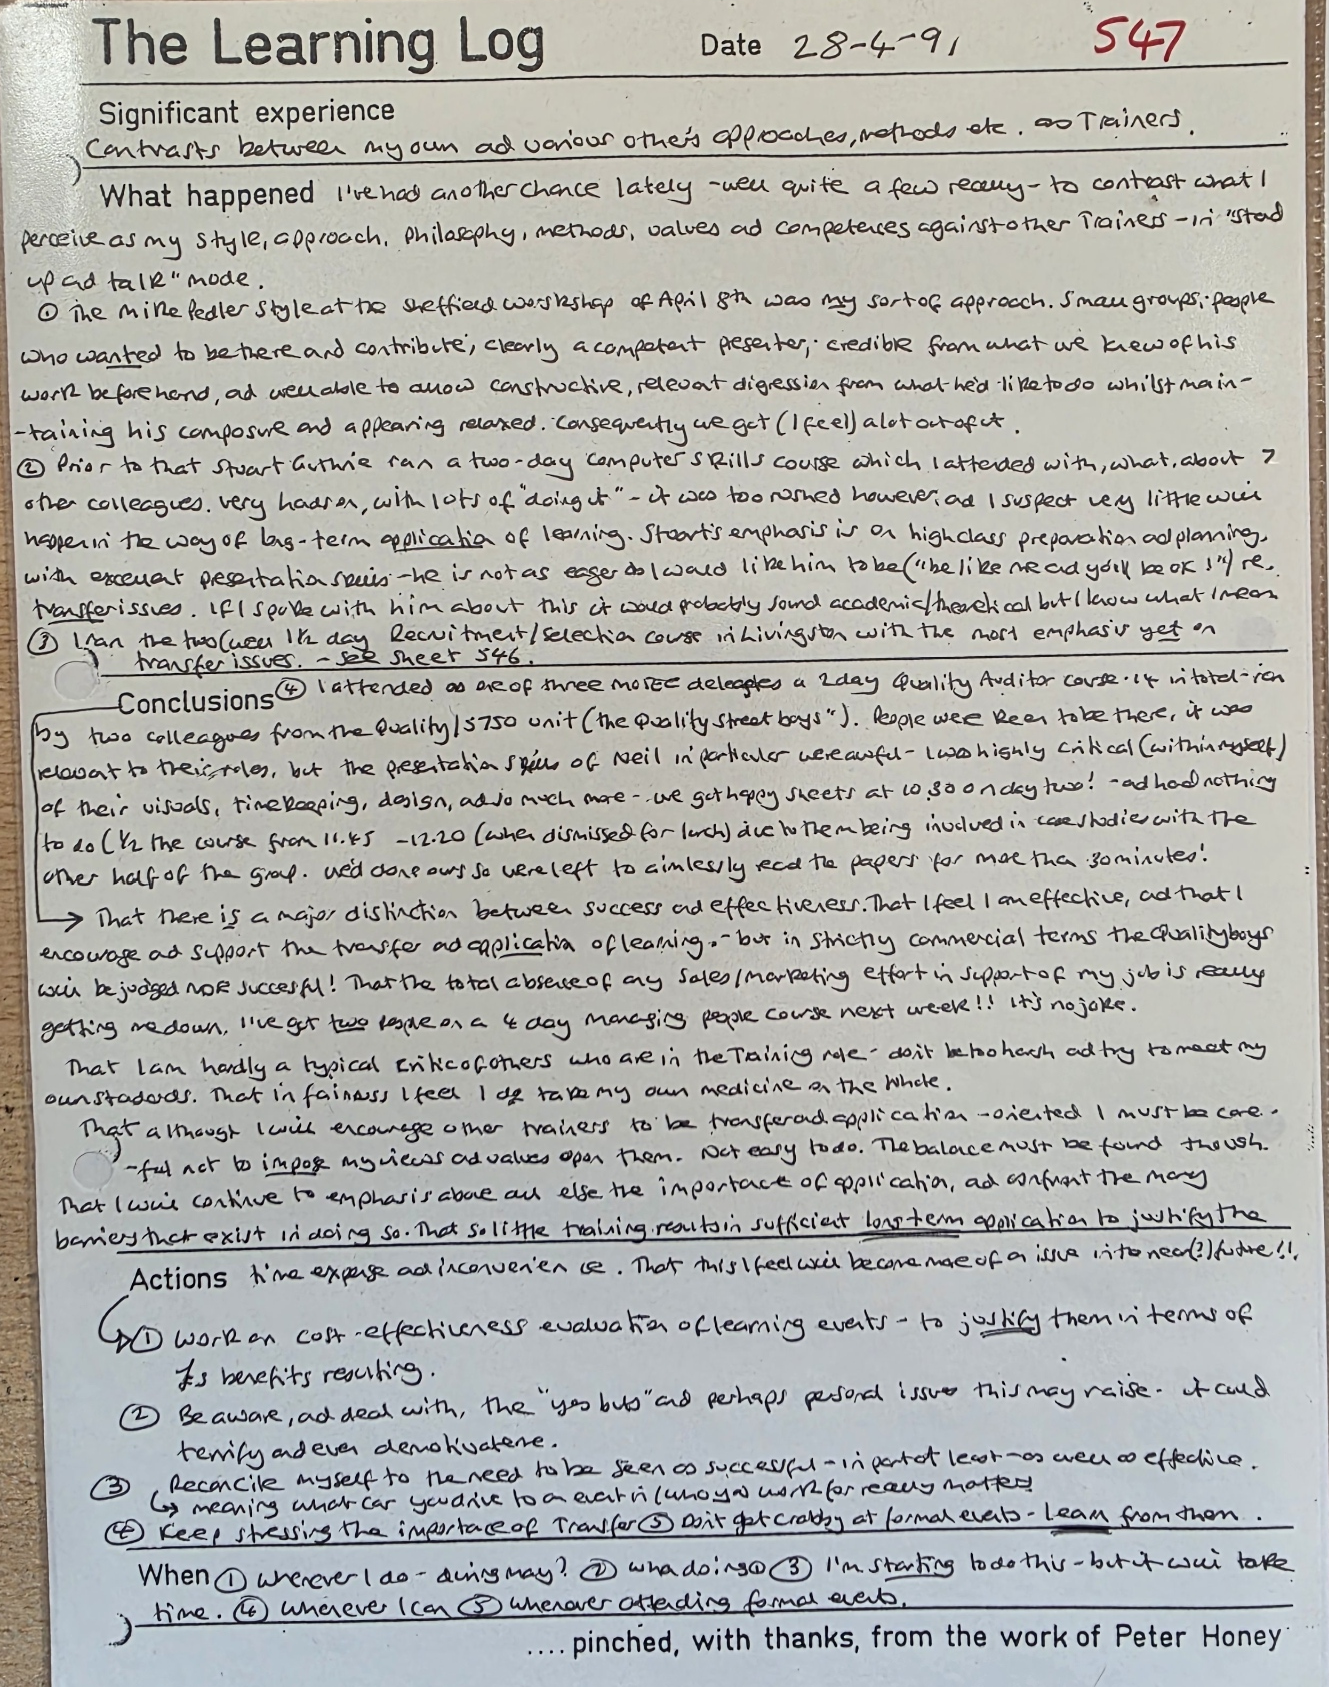 The Learning Log Date 28-4-91 547
Significant experience
Contrasts between my own ad various other's approaches, methods etc. as Trainers.
What happened I've had another chance lately - well quite a few really - to contrast what I
perceive as my style, approach, philosophy, methods, values ad competences against other Trainers - in "stand
up ad talk" mode.
① The Mike Pedler style at the Sheffield workshop of April 8th was my sort of approach. Small groups; people
who wanted to be there and contribute; clearly a competent presenter; credible from what we knew of his
work beforehand, ad well able to allow constructive, relevant digression from what he'd like to do whilst main-
-taining his composure and appearing relaxed. Consequently we got (I feel) a lot out of it.
② Prior to that Stuart Guthrie ran a two-day computer skills course which I attended with, what, about 7
other colleagues. Very hands on, with lots of "doing it" - it was too rushed however, ad I suspect very little will
happen in the way of long-term application of learning. Stuart's emphasis is on high class preparation ad planning,
with excellent presentation skills - he is not as eager as I would like him to be ("be like me ad you'll be OK!") re.
transfer issues. If I spoke with him about this it would probably sound academic/theoretical but I know what I mean
③ I ran the two (well 1½ day Recruitment/Selection course in Livingston with the most emphasis yet on
transfer issues. - see sheet 546.
Conclusions ④ I attended as one of three delegates a 2 day Quality Auditor course - 14 in total - run
by two colleagues from the Quality/5750 unit (the Quality Street boys"). People were keen to be there, it was
relevant to their roles, but the presentation skills of Neil in particular were awful - I was highly critical (within myself)
of their visuals, timekeeping, design, ad so much more - we got happy sheets at 10.30 on day two! - ad had nothing
to do (½ the course from 11.45 - 12.20 (when dismissed for lunch) due to them being involved in case studies with the
other half of the group. We'd done ours so were left to aimlessly read the papers for more than 30 minutes!
→ That there is a major distinction between success ad effectiveness. That I feel I am effective, ad that I
encourage ad support the transfer ad application of learning. - but in strictly commercial terms the Quality boys
will be judged more succesful! That the total absence of any sales/marketing effort in support of my job is really
getting me down. I've got two people on a 4 day managing people course next week!! It's no joke.
That I am hardly a typical critic of others who are in the Training role - don't be too harsh ad try to meet my
own standards. That in fairness I feel I do take my own medicine on the whole.
That although I will encourage other trainers to be transfer ad application - oriented I must be care-
-ful not to impose my views ad values upon them. Not easy to do. The balance must be found though.
That I will continue to emphasis above all else the importance of application, ad confront the many
barriers that exist in doing so. That so little training results in sufficient long term application to justify the
Actions time expense ad inconvenience. That this I feel will become more of an issue in the near(?) future!!.
① Work on cost-effectiveness evaluation of learning events - to justify them in terms of
£s benefits resulting.
② Be aware, ad deal with, the "yes buts" and perhaps personal issues this may raise - it could
terrify and even demotivate me.
③ Reconcile myself to the need to be seen as successful - in part at least - as well as effective.
↳ meaning what car you drive to an event in (who you work for really matters!
④ Keep stressing the importance of Transfer ⑤ Don't get crabby at formal events - learn from them.
When ① Wherever I do - during may? ② When doing ① ③ I'm starting to do this - but it will take
time. ④ Whenever I can ⑤ whenever attending formal events.
.... pinched, with thanks, from the work of Peter Honey